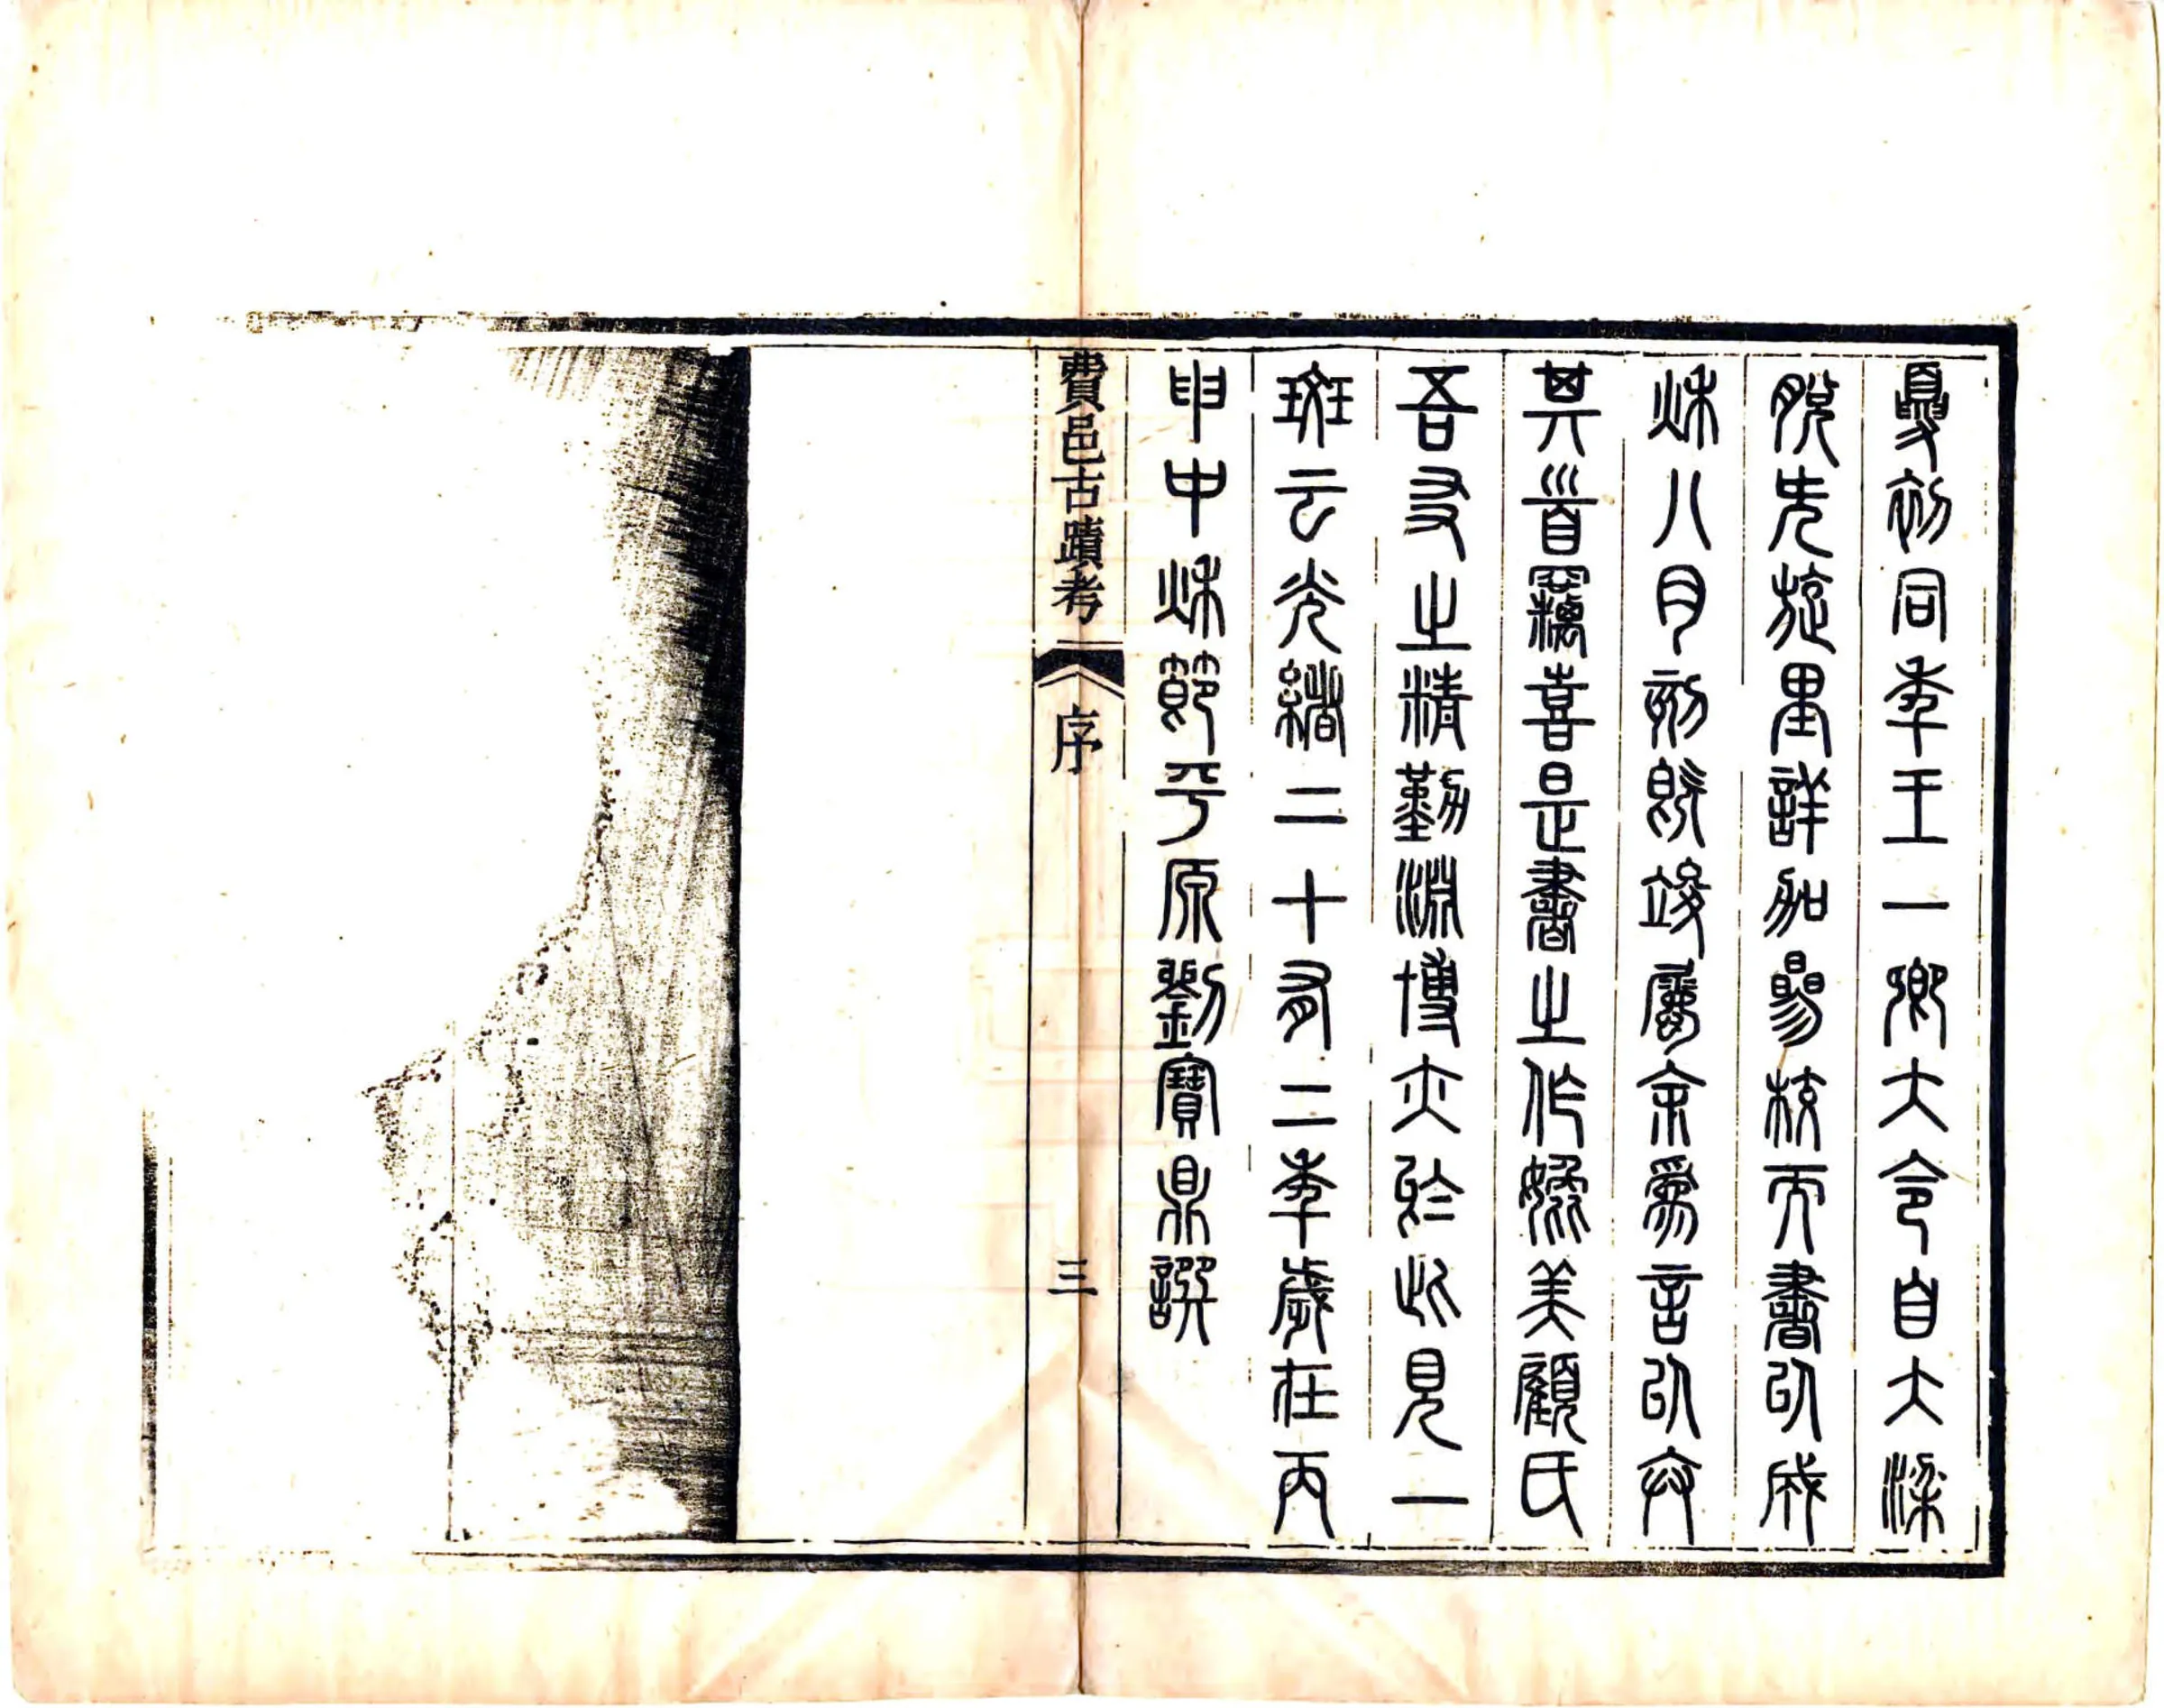 夏初同年王一卿大令自大梁
脫先旋里詳加昜核而書以成
秌八月刻既竣屬余為言以弁
其首竊喜是書之作媲美顧氏
吾友之精勤淵博亦於此見一
斑云光緒二十有二年歲在丙
申中秌節平原劉寶鼎譔
費邑古蹟考 序 三